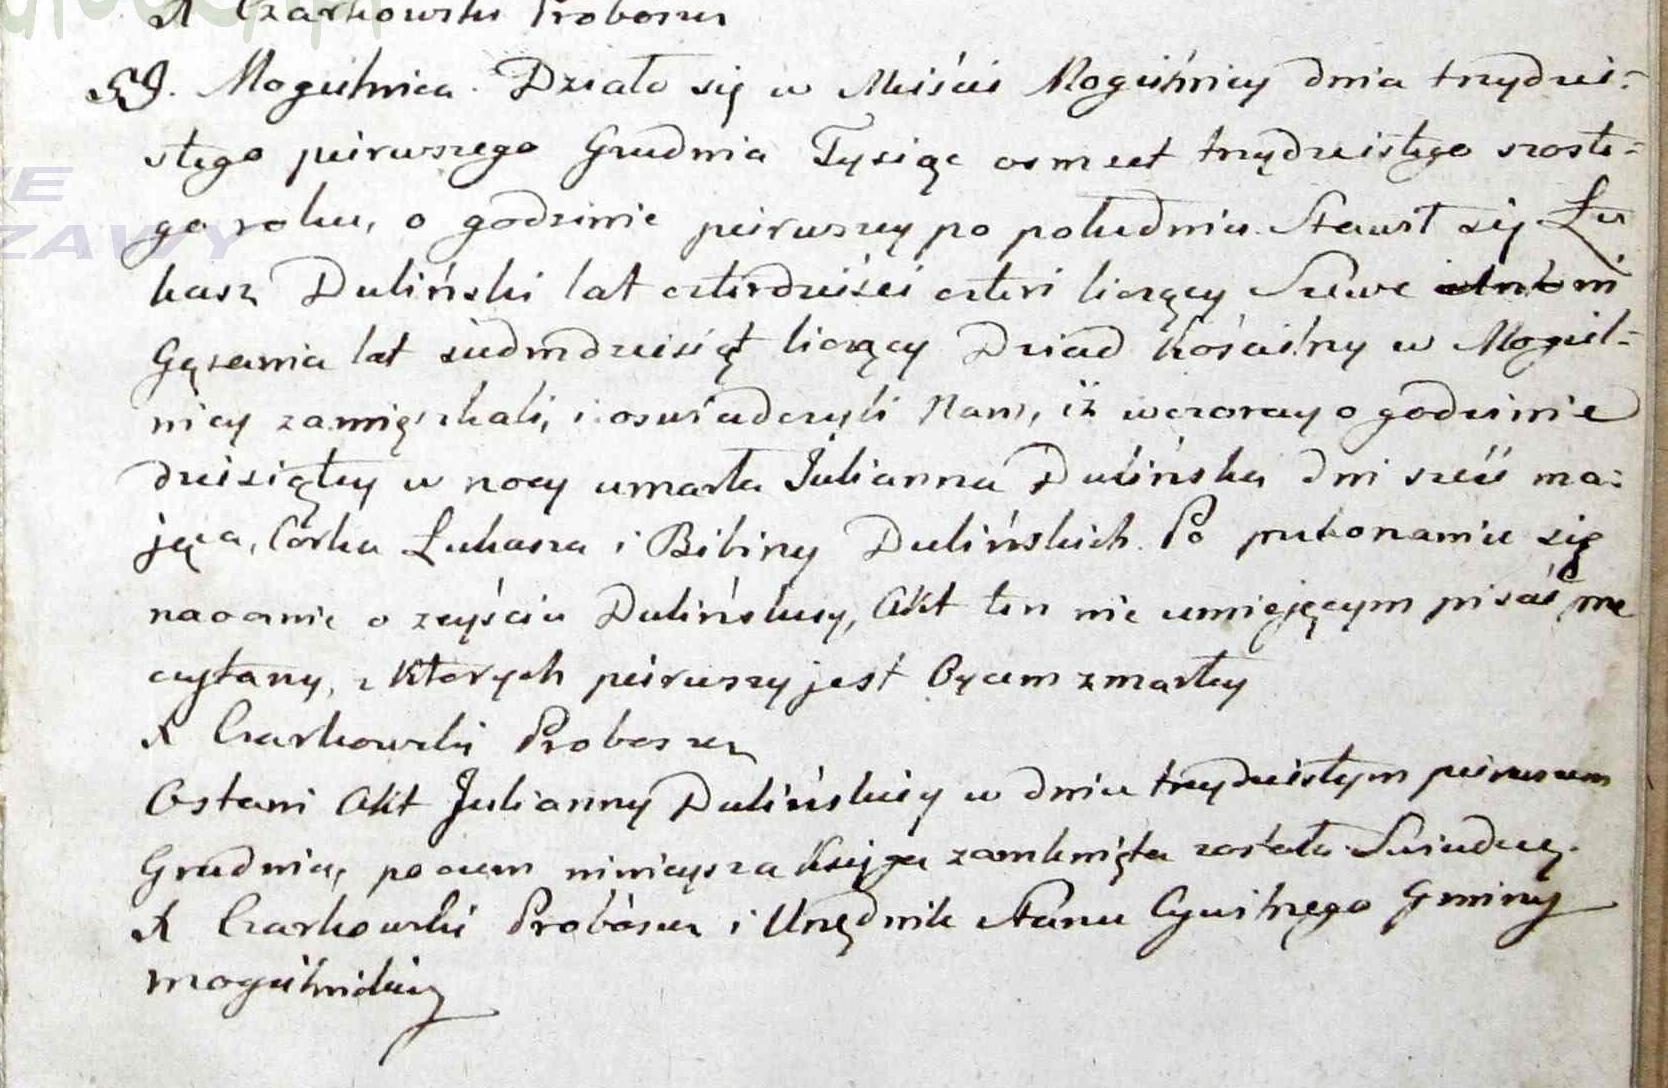 A Czarkowski Proboszcz
59. Mogielnica. Działo się w Mieście Mogielnicy dnia trzydzie=
stego pierwszego Grudnia Tysiąc osmset trzydziestego szoste=
go roku, o godzinie pierwszey po południu. Stawił się Łu
kasz Duliński lat czterdzieści cztery liczący Szewc i
Gąsania lat siedmdziesiąt liczący Dziad kościelny w Mogiel=
nicy zamięszkali, i oswiadczyli Nam, iż wczoray o godzinie
dziesiątey w nocy umarła Julianna Dulińska dni sześć ma=
jąca, Córka Łukasza i Bibiny Dulińskich. Po przekonaniu się
naocznie o zeyściu Dulińskiey, Akt ten nie umiejącym pisać prze
czytany, z których pierwszy jest Oycem zmarłey
A Czarkowski Proboszcz
Ostatni Akt Julianny Dulińskiey w dniu trzydziestym pierwszem
Grudnia, poczem ninieysza Księga zamknięta została. Swiadczę.
A Czarkowski Proboszcz i Urzędnik Stanu Cywilnego Gminy
mogielnickiey
WE
ZAWY